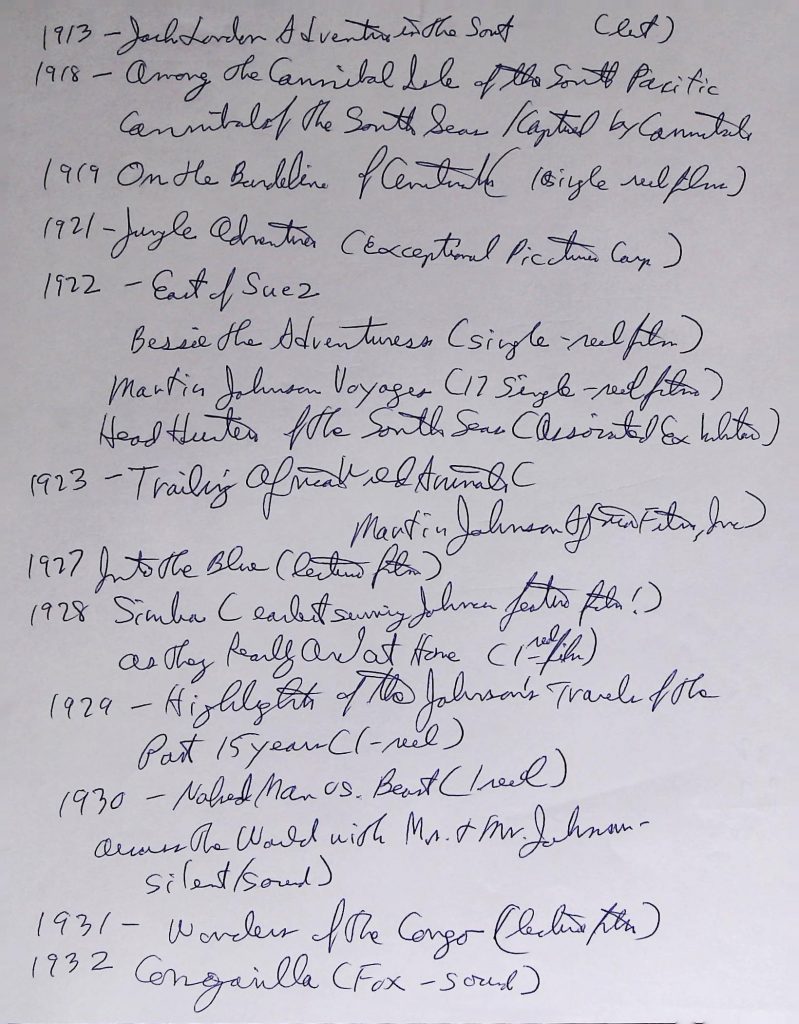 1913 - Jack London Adventures in the South (lost)
1918 - Among the Cannibal Isle of the South Pacific
Cannibals of the South Seas / Captured by Cannibals
1919 On the Borderline of Civilization (single reel film)
1921 - Jungle Adventures (Exceptional Pictures Corp)
1922 - East of Suez
Bessie the Adventuress (single-reel film)
Martin Johnson Voyages (17 single-reel films)
Head Hunters of the South Seas (Associated Exhibitors)
1923 - Trailing African Wild Animals (
Martin Johnson African Film, Inc)
1927 Into the Blue (lecture film)
1928 Simba (earliest surviving Johnson feature film!)
As they Really Are at Home (1-reel film)
1929 - Highlights of the Johnson's Travels of the
Past 15 years (1-reel)
1930 - Naked Man vs. Beast (1 reel)
Across the World with Mr. & Mrs. Johnson -
silent/sound)
1931 - Wonders of the Congo (lecture film)
1932 Congorilla (Fox - sound)